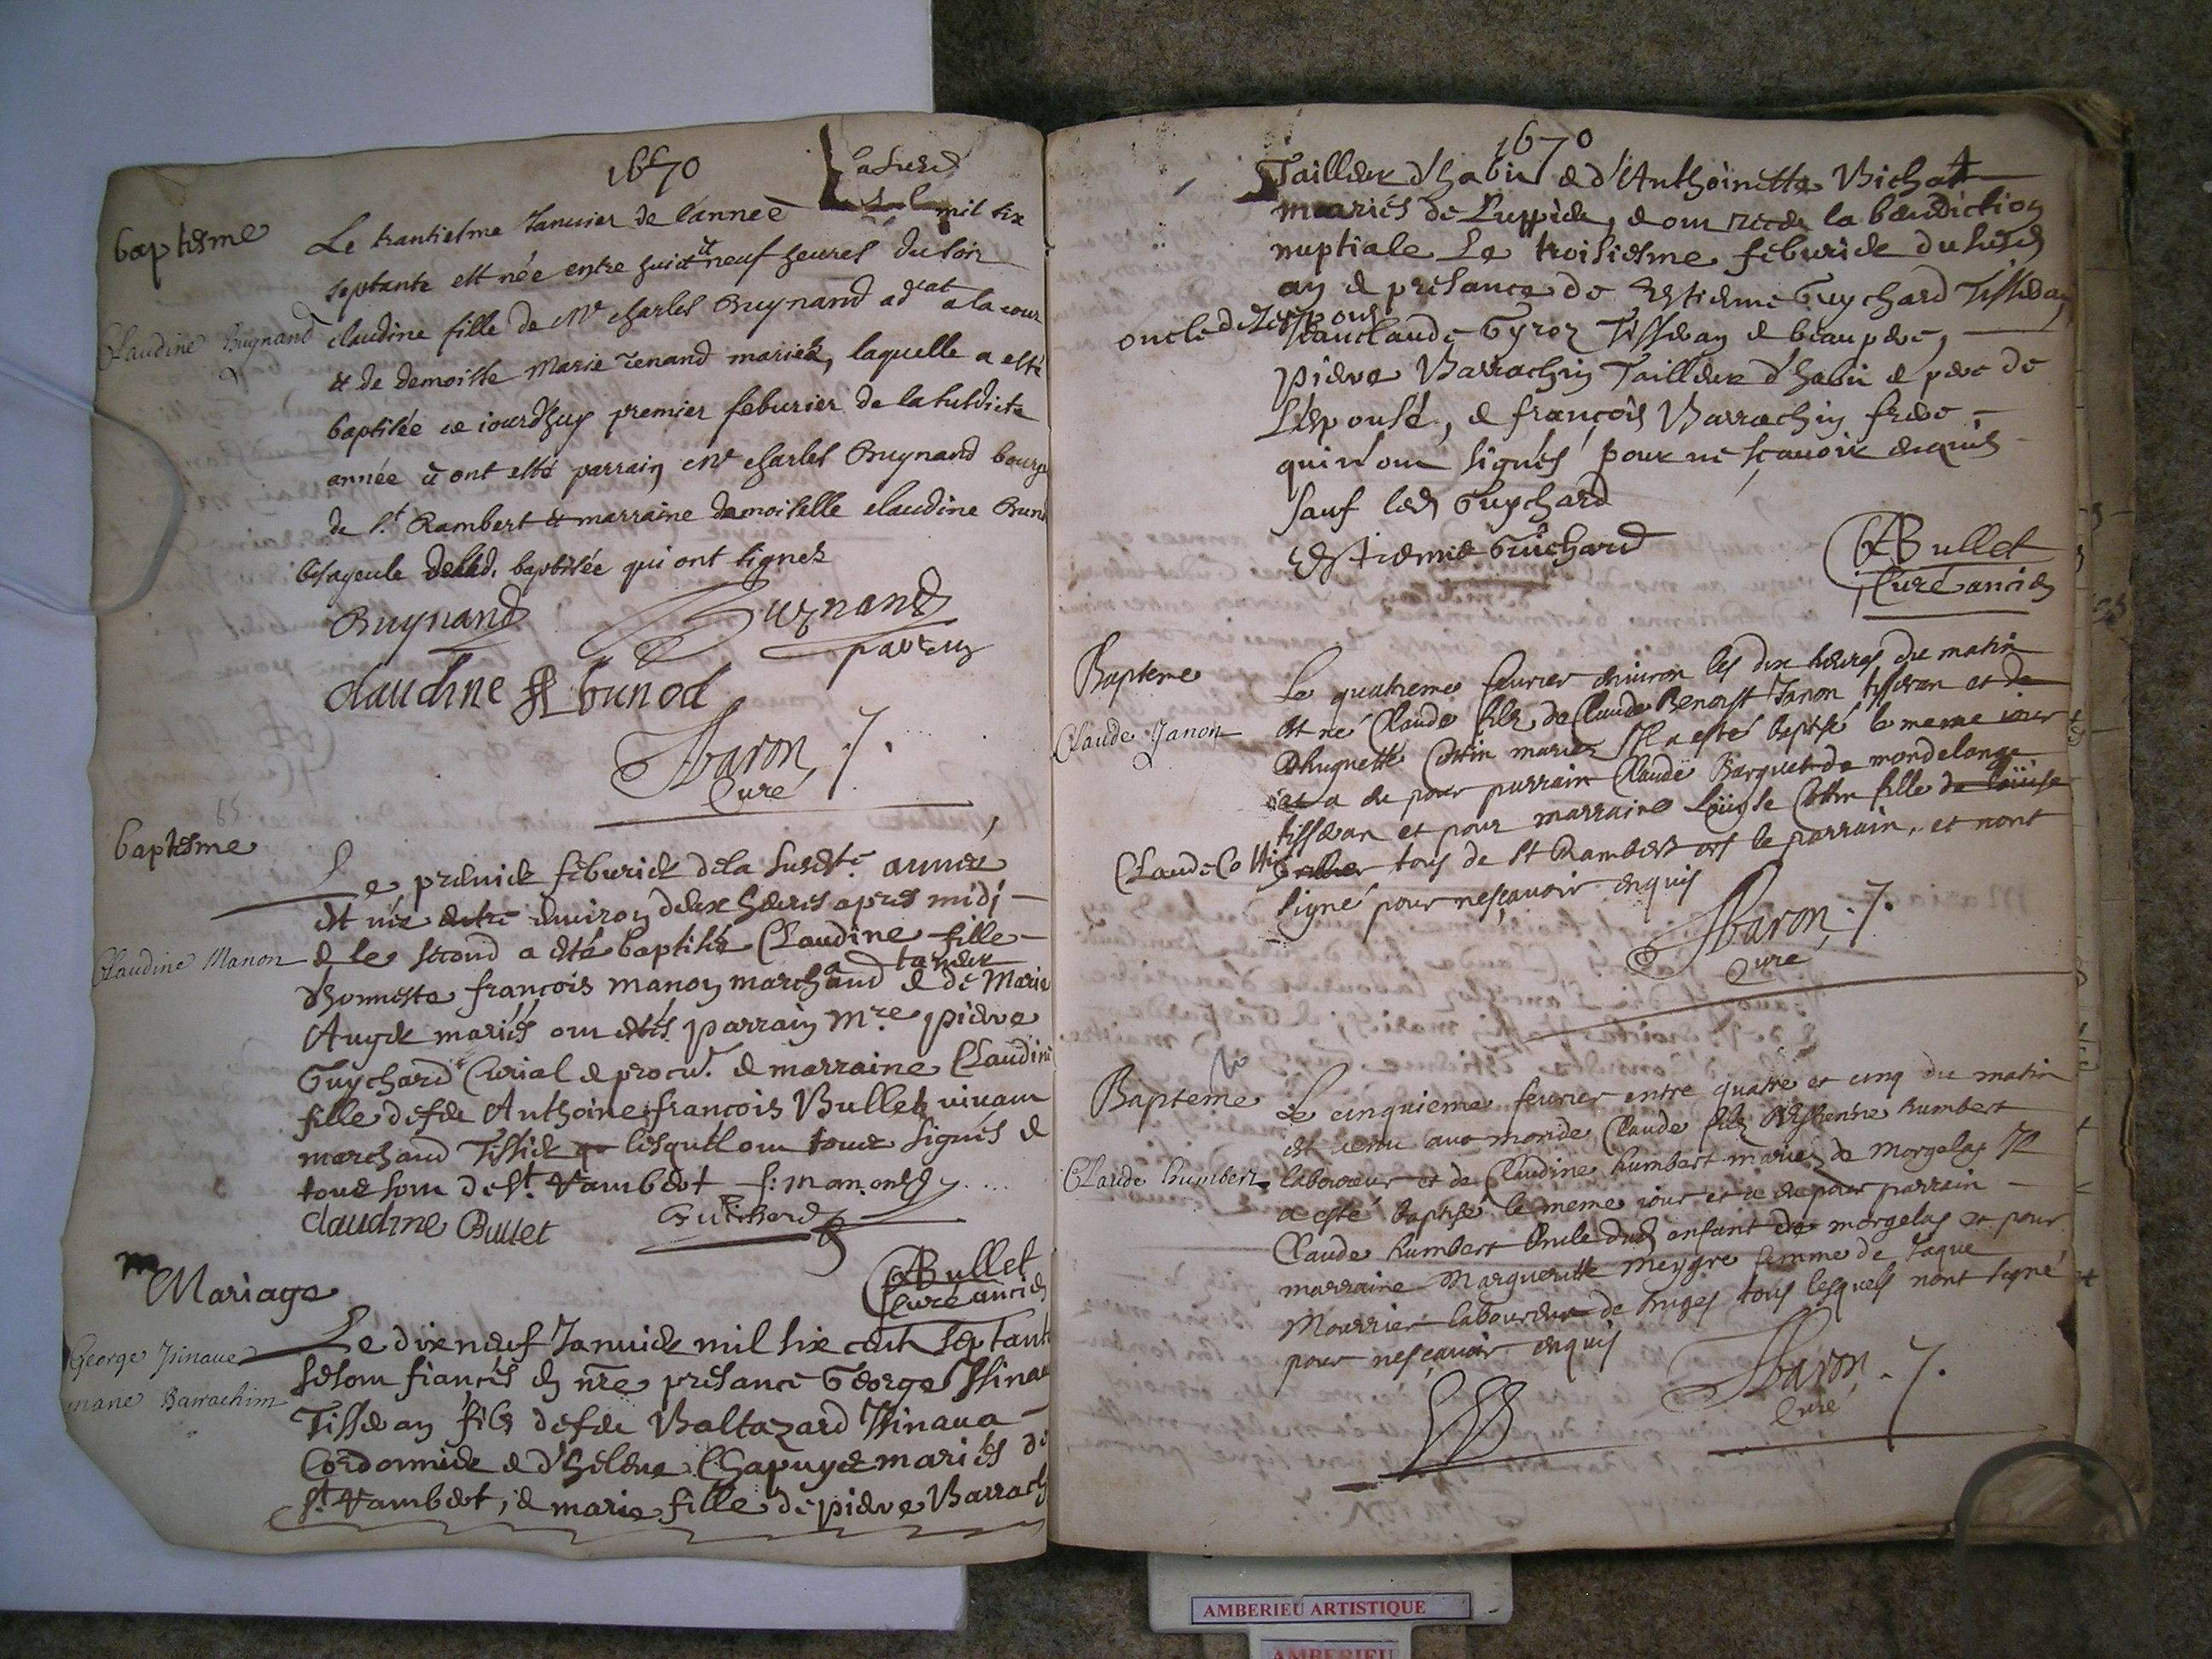 1670
baptesme
Le trantiesme Januier de l'année mil six
septante est née entre huict et neuf heures du soir
Claudine Buynand
claudine fille de Mr charles Buynand adcat a la cour
et de demoiselle Marie renand mariez, laquelle a esté
baptisée ce iourdhuy premier feburier de la susdicte
année et ont esté parrain Mr charles Buynand bourge
de St Rambert et marraine damoiselle claudine Bun
bisayeule delad. baptisée qui ont signez
Buynand Buynand
parrein
claudine bunod
Jbaron
Curé
baptesme
Le premier feburier dela susdte année
est née entre enuiron deux heures apres midj
Claudine Manon
& le second a esté baptisée Claudine fille
d'honneste françois manon marchand taneur & de Marie
Augek mariés ont estés parrain Mre pierre
Guychard Curial & procur. & marraine Claudine
fille de feu Anthoine françois Bullet viuant
marchand Tissier lesquels ont tous signés &
tous sont de St. Rambert f: manon
claudine Bullet Guichard
ABullet
Curé ancien
m
Mariage
Le dixneuf Januier mil six cent septante
George Jsinaue
marie Barrachim
se sont fiancés en nre presance George Jsinau
Tisseran fils de feu Baltazard Jsinaua
Cordonnier & d'helene Chapuys mariés de
St. Rambert, & marie fille de pierre Barrach
1670
Tailleur d'habit & d'Anthoinette Bichat
mariés de Luppieu, & ont receu la benediction
nuptiale Le troisiesme feburier du susd
an & presance de Estienne Guychard Tisseran
oncle de l'espoux
Jeanclaude Gyroz Tisseran & beaupere,
pierre Barrachin Tailleur d'habit & pere de
L'espouse, & françois Barrachin frere
qui n'ont signés pour ne scauoir enquis
sauf led Guychard
Estienne Guichard
ABullet
Curé ancien
Bapteme
Le quatrieme feurier enuiron les dix heures du matin
Claude Janon
est né Claude filz de Claude Benoist Janon tisseran et de
Dhuguette Cottin mariez Jl a esté baptisé le meme iour
et a eu pour parrain Claude Barquet de mondelange
tisseran et pour marraine Loüise Cottin fille de loüise
Claude Cottin
tous de St Rambert et le parrain, et nont
signé pour nesçauoir enquis
Jbaron
Curé
Bapteme
Le cinquieme feurier entre quatre et cinq du matin
est venu aux monde Claude filz D'Esthenne humbert
Claude humbert
laboureur et de Claudine humbert mariez de Morgelas Jl
a esté baptisé le meme iour et a eu pour parrain
Claude humbert Oncle dud enfant de morgelas et pour
marraine Margueritte meygre femme de Jaque
Mourrier laboureur de huges tous lesquels nont signé
pour nesçauoir enquis
Jbaron
Curé
AMBERIEU ARTISTIQUE
AMBERIEU